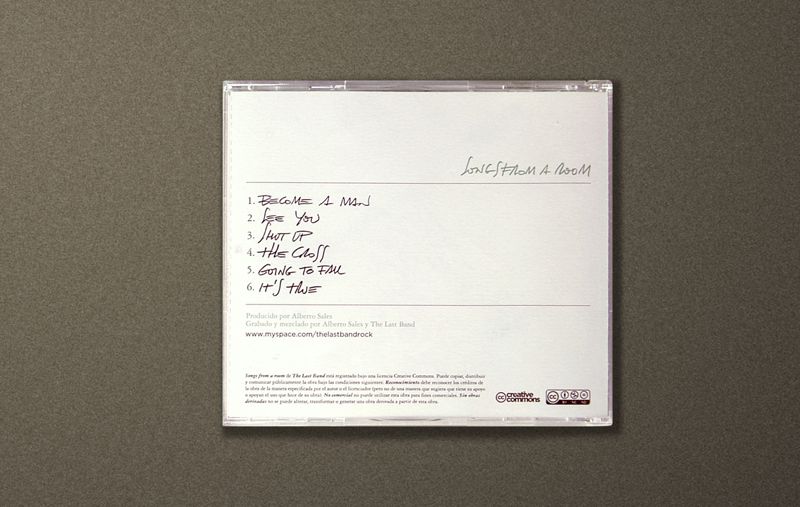 SONGS FROM A ROOM
1. BECOME A MAN
2. SEE YOU
3. SHUT UP
4. THE CROSS
5. GOING TO FALL
6. IT'S TRUE
Producido por Alberto Sales
Grabado y mezclado por Alberto Sales y The Last Band
www.myspace.com/thelastbandrock
Songs from a room de The Last Band está registrado bajo una licencia Creative Commons. Puede copiar, distribuir
y comunicar públicamente la obra bajo las condiciones siguientes. Reconocimiento debe reconocer los créditos de
la obra de la manera especificada por el autor o el licenciador (pero no de una manera que sugiera que tiene su apoyo
o apoyan el uso que hace de su obra). No comercial no puede utilizar esta obra para fines comerciales. Sin obras
derivadas no se puede alterar, transformar o generar una obra derivada a partir de esta obra.
cc creative
commons
cc
BY NC ND